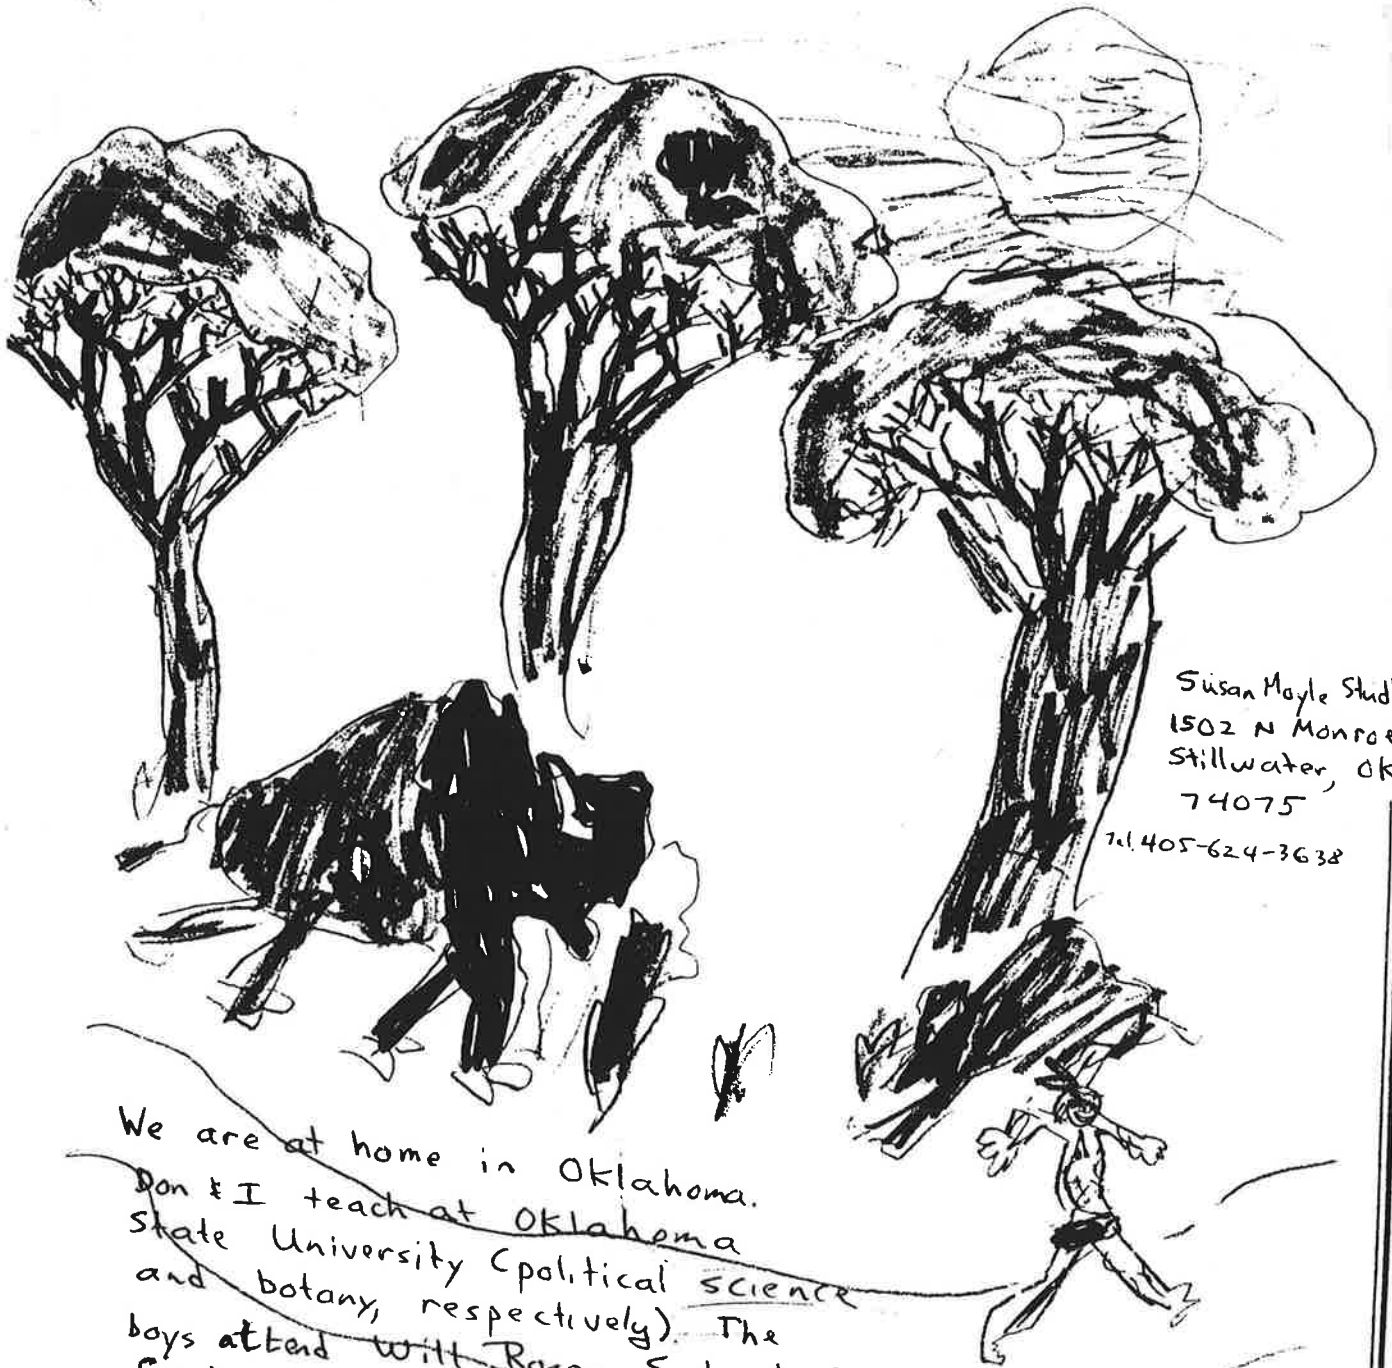 Susan Moyle Stud
1502 N Monroe
Stillwater, OK
74075
Tel. 405-624-3638
We are at home in Oklahoma.
Don & I teach at Oklahoma
State University (political science
and botany, respectively). The
boys attend Will